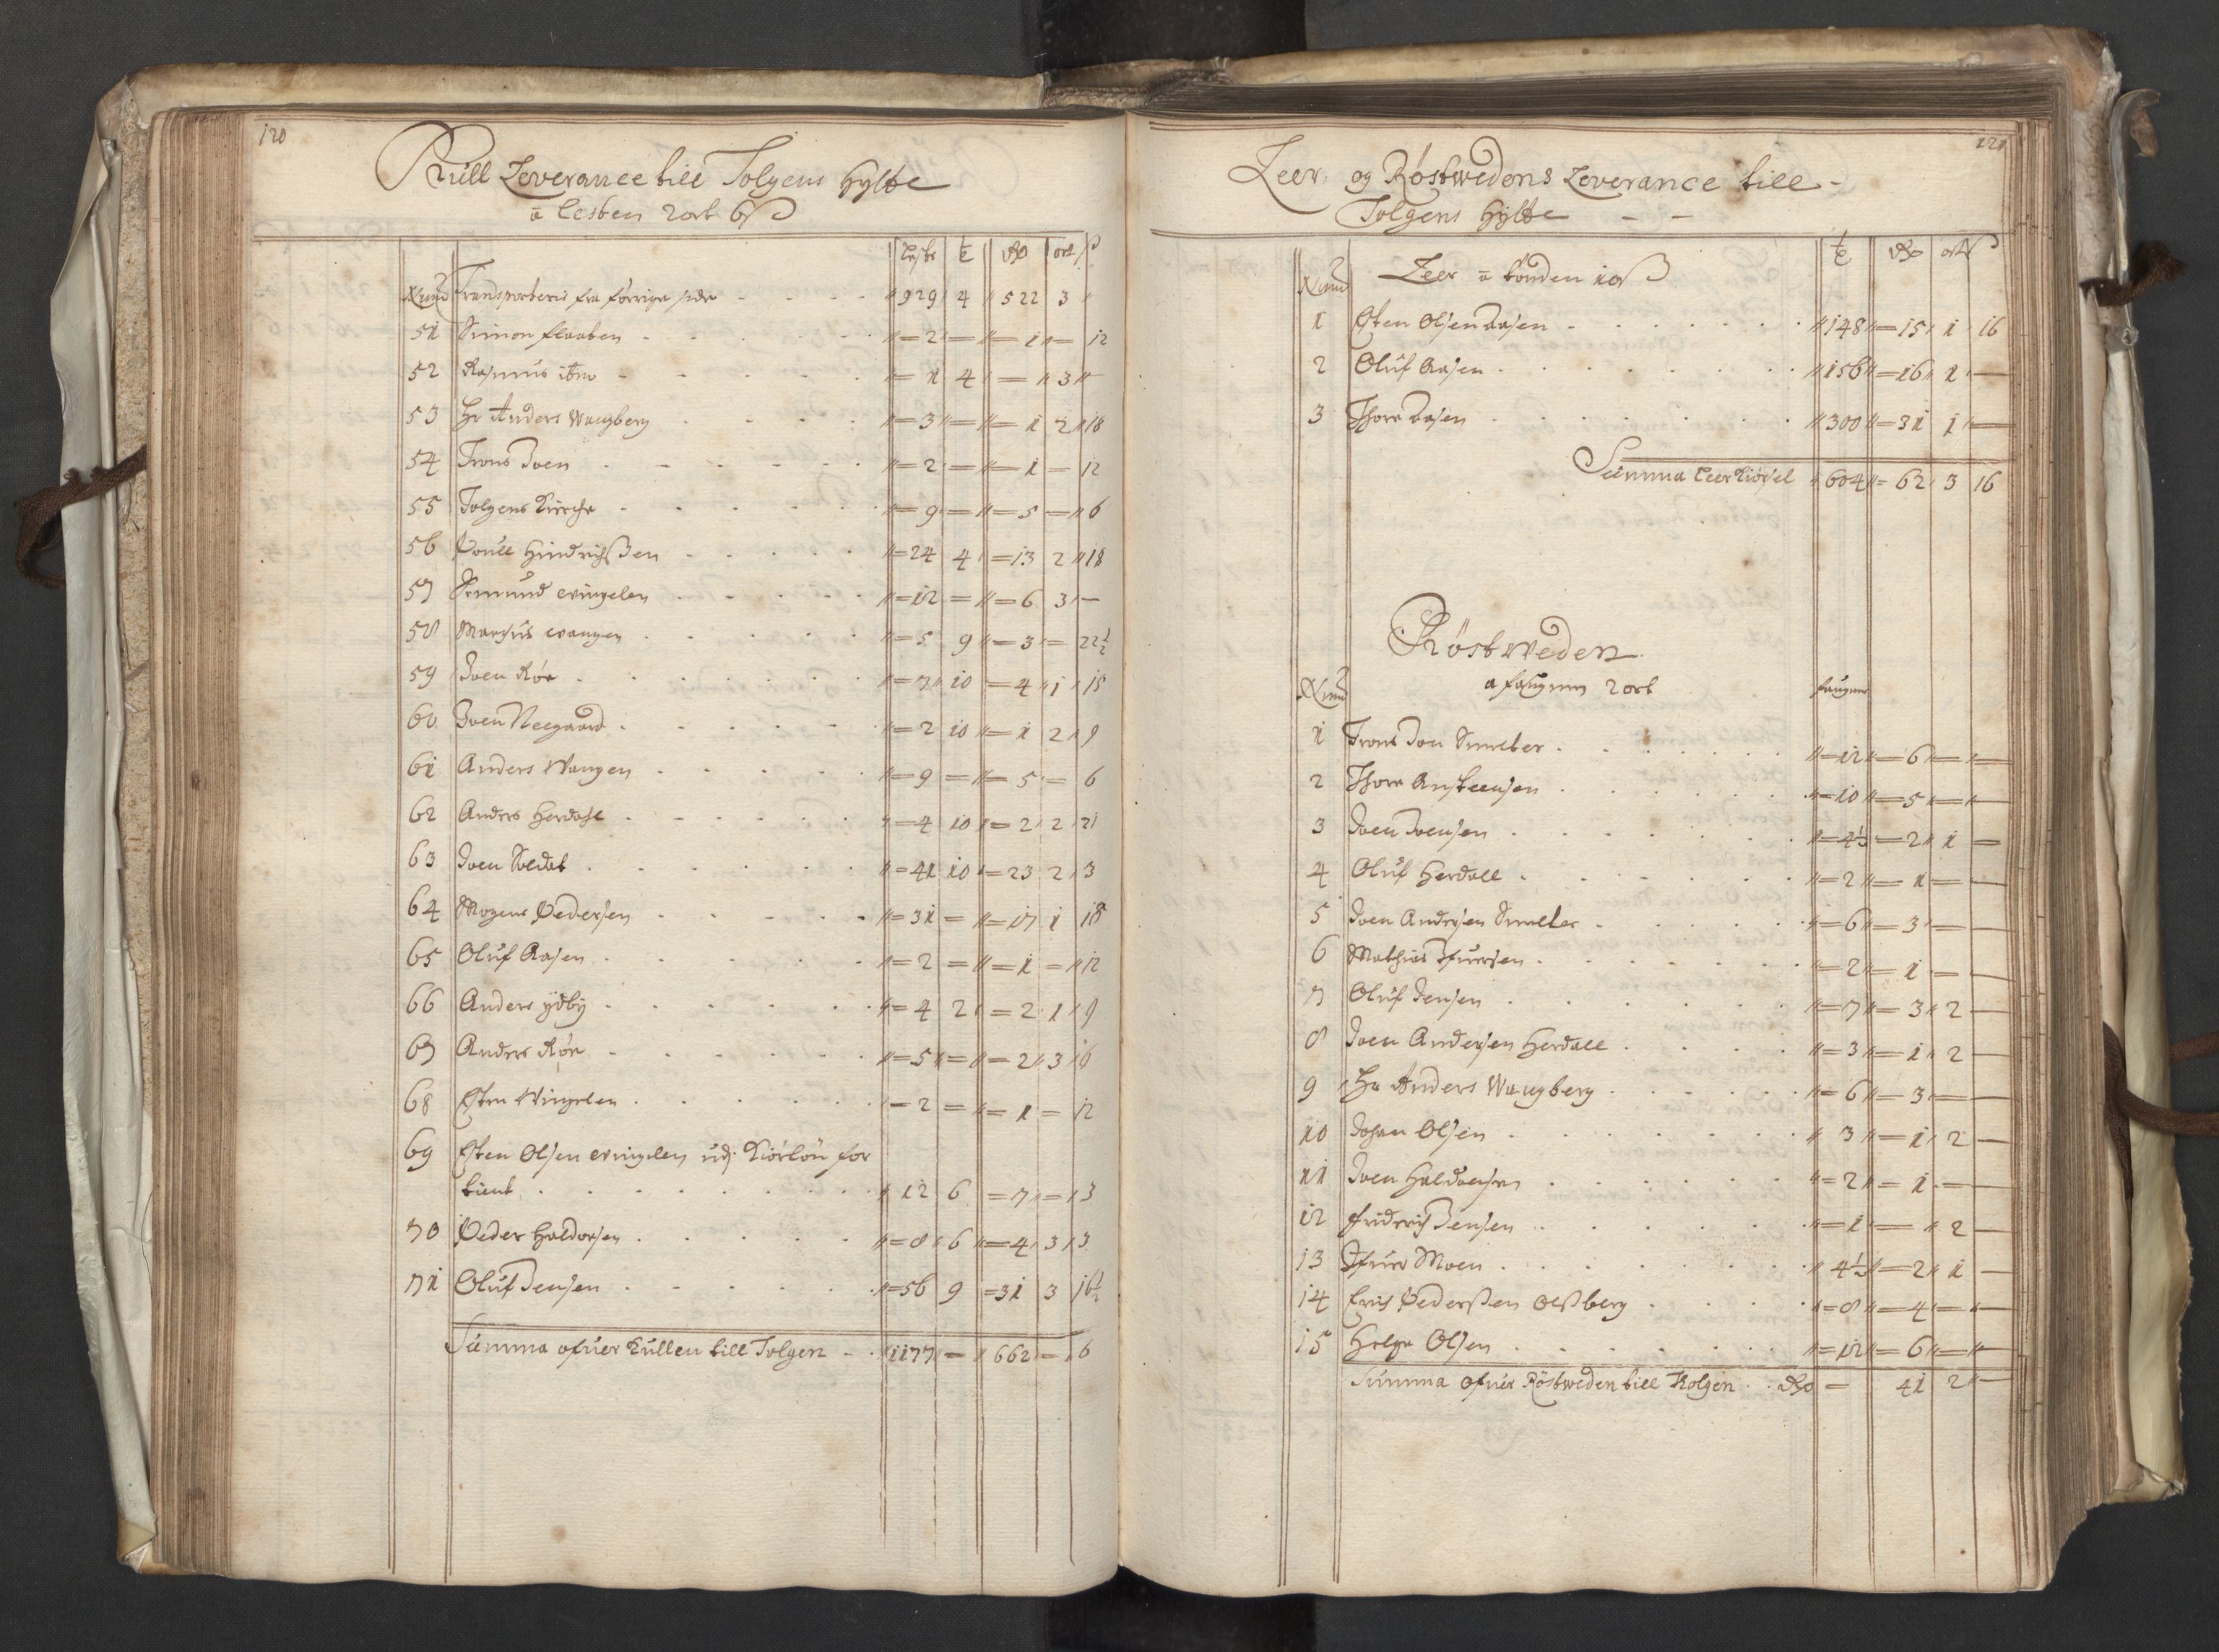 120
Kull Leverance till Tolgens Hytte
a lesten 2 ort 6 ß
Num Lester t Rdr ort ß
Transporteris fra forrige side 929 4 522 3 "
51 Simon Flaaten 2 – 1 – 12
52 Rasmus ibm 1 4 – 3 –
53 Hr Anders Wangberg 3 – 1 2 18
54 Trons Joen 2 – 1 – 12
55 Tolgens Kirche 9 – 5 – 6
56 Poull Hindrichßen 24 4 13 2 18
57 Semund Vingelen 12 – 6 3 –
58 Marchus Vangen 5 9 3 – 22½
59 Joen Røe 7 10 4 1 15
60 Joen Neegaard 2 10 1 2 9
61 Anders Wangen 9 – 5 – 6
62 Anders Herdahl 4 10 2 2 21
63 Joen Soldat 41 10 23 2 3
64 Mogens Pedersen 31 – 17 1 18
65 Oluf Aasen 2 – 1 – 12
66 Anders ÿdbÿ 4 2 2 1 9
67 Anders Røe 5 – 2 3 6
68 Esten Vingelen 2 – 1 – 12
69 Esten Olsen Vingelen udj Kiørløn for
tient 12 6 7 – 3
70 Peder Haldorsen 8 6 4 3 3
71 Oluf Jensen 56 9 31 3 16½
Summa ofuer Kullen till Tolgen 1177 – 662 – 6
121
Leer og Røstwedens Leverance till
Tolgens Hÿtte
Num Leer a tønden 10 ß t Rdr ort ß
1 Esten Olsen Aasen 148 15 1 16
2 Oluf Aasen 156 16 1 –
3 Thore Aasen 300 31 1 –
Summa Leer Kiørsel 604 62 3 16
Röstweden
Num a faugnen 2 ort faugner
1 Trons Joen Smelter 12 6 – –
2 Thore Ansteensen 10 5 – –
3 Joen Joensen 4½ 2 1 –
4 Oluf Herdall 2 1 – –
5 Joen Andersen Smelter 6 3 – –
6 Mathias Ifuersen 2 1 – –
7 Oluf Jensen 7 3 2 –
8 Joen Andersen Herdall 3 1 2 –
9 Hr Anders Wangberg 6 3 – –
10 Johan Olsen 3 1 2 –
11 Joen Haldorsen 2 1 – –
12 Friderich Jensen 1 – 2 –
13 Ifuer Moen 4½ 2 1 –
14 Erich Pederßen Olßberg 8 4 – –
15 Helge Olsen 12 6 – –
Summa ofuer Röstweden till Tolgen Rdr 41 2 –